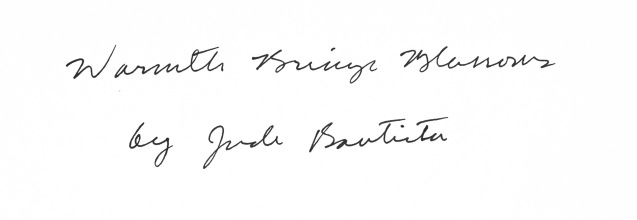 Warmth Brings Blossoms
by Jude Bautista